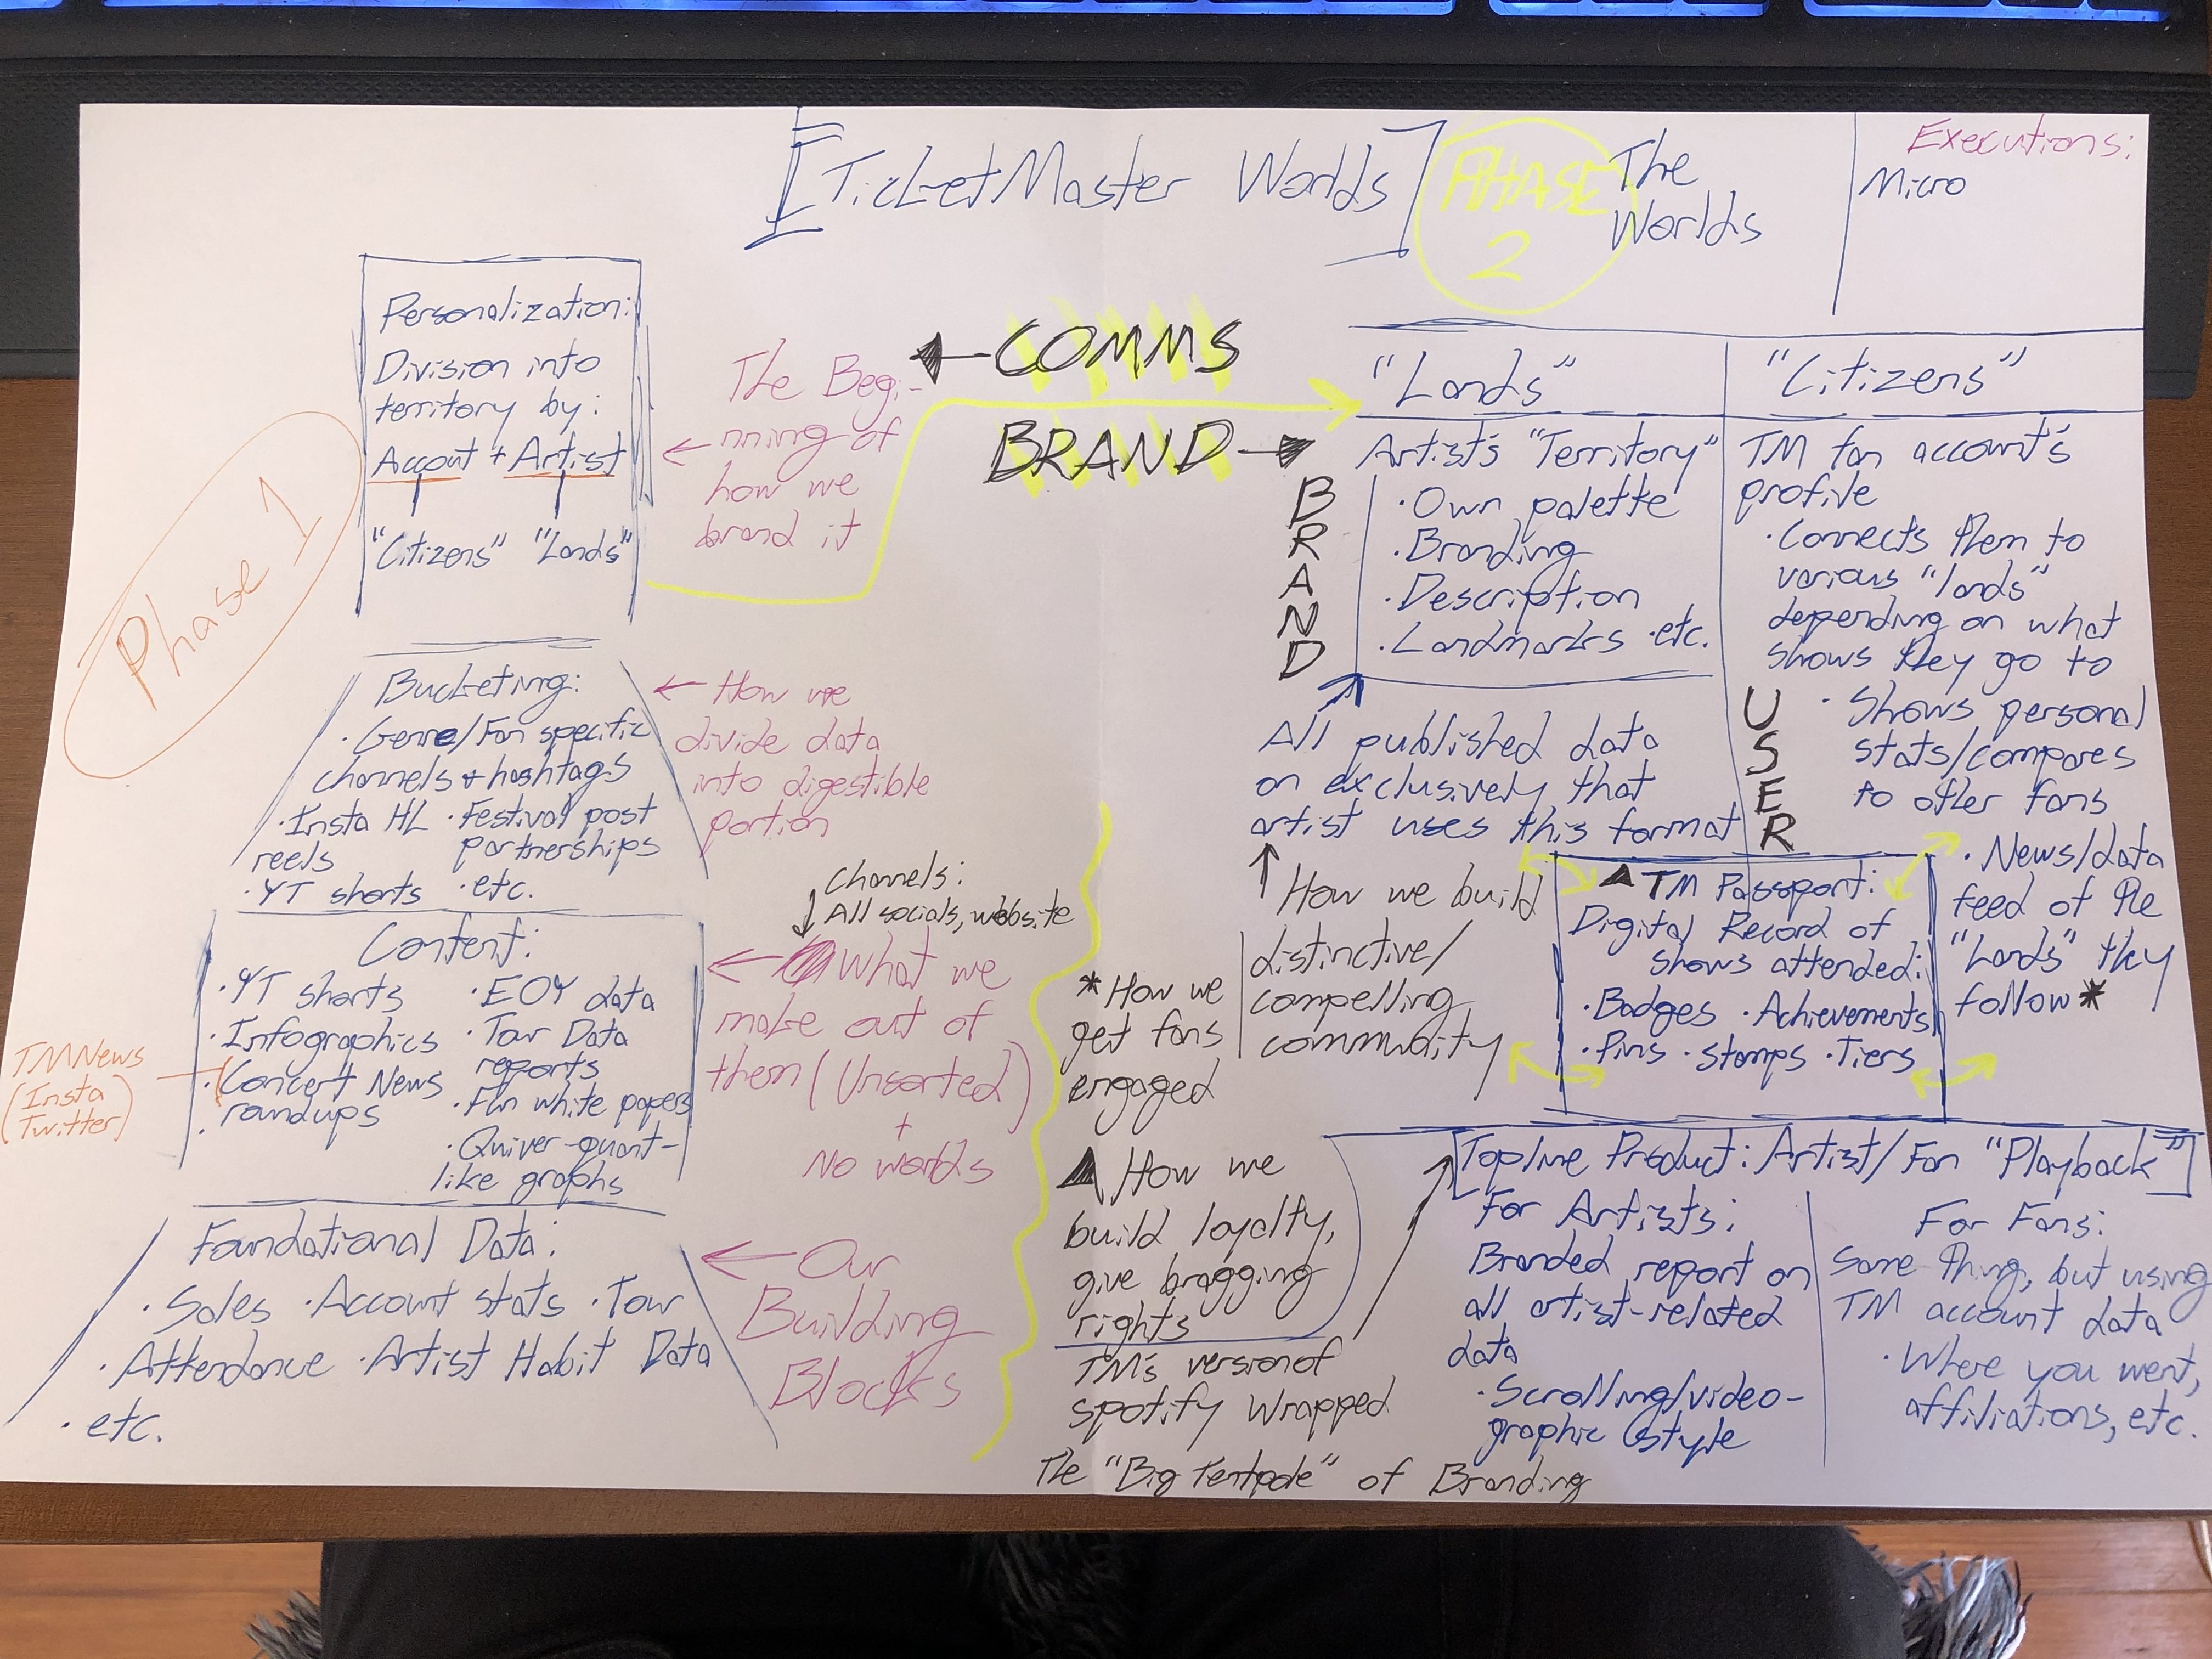 [TicketMaster Worlds]
PHASE
2
The
Worlds
Executions:
Micro
Phase 1
Personalization:
Division into
territory by:
Accout + Artist
"Citizens" "Lands"
The Begi-
nning of
how we
brand it
COMMS
BRAND
Bucketing:
· Genre/Fan specific
channels + hashtags
· Insta HL · Festival post
reels partnerships
· YT shorts · etc.
How we
divide data
into digestible
portion
Channels:
All socials, website
Content:
· YT shorts · EOY data
· Infographics · Tour Data
reports
· Concert News · Fun white papers
roundups
· Quiver-quant-
like graphs
TMNews
(Insta
Twitter)
What we
make out of
them (Unsorted)
+
No worlds
Foundational Data:
· Sales · Account stats · Tour
· Attendance · Artist Habit Data
· etc.
Our
Building
Blocks
"Lands"
Artist's "Territory"
· Own palette
· Branding
· Description
· Landmarks · etc.
BRAND
All published data
on exclusively that
artist uses this format
How we build
distinctive/
compelling
community
"Citizens"
TM fan account's
profile
· Connects them to
various "lands"
depending on what
shows they go to
USER
· Shows personal
stats/compares
to other fans
· News/data
feed of the
"Lands" they
follow*
▲ TM Passport:
Digital Record of
shows attended:
· Badges · Achievements
· Pins · Stamps · Tiers
* How we
get fans
engaged
▲ How we
build loyalty,
give bragging
rights
TM's version of
spotify Wrapped
The "Big Tentpole" of Branding
[Topline Product: Artist/Fan "Playback"]
For Artists:
Branded report on
all artist-related
data
· Scrolling/video-
graphic style
For Fans:
Same thing, but using
TM account data
· Where you went,
affiliations, etc.